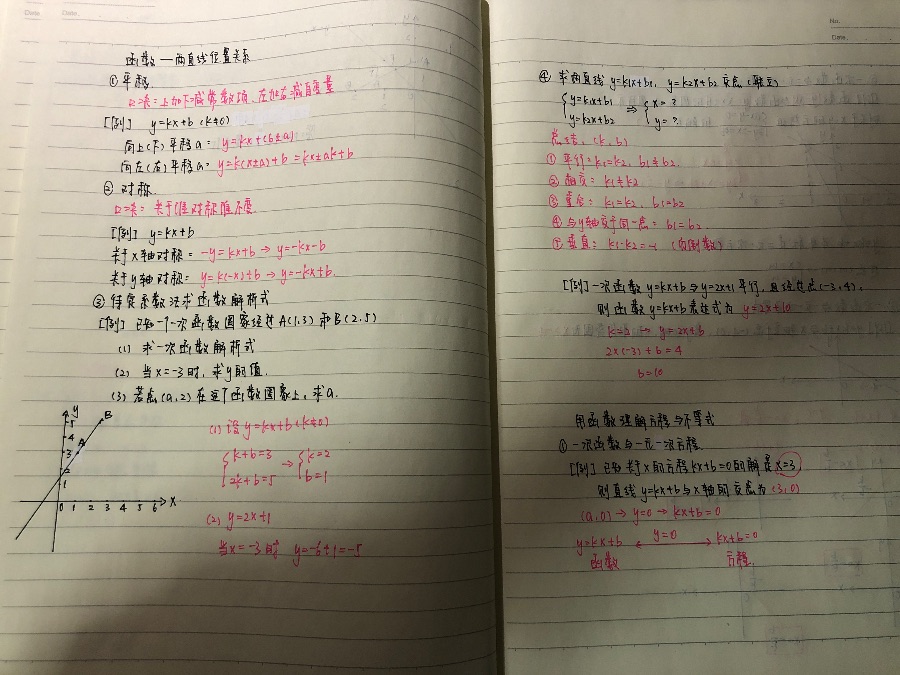 Date.
Date.
函数—两直线位置关系
① 平移
口诀:上加下减常数项,左加右减自变量
[例] y=kx+b (k≠0)
向上(下)平移a: y=kx+(b±a)
向左(右)平移a: y=k(x±a)+b=kx±ak+b
② 对称
口诀:关于谁对称谁不变
[例] y=kx+b
关于x轴对称:-y=kx+b→y=-kx-b
关于y轴对称:y=k(-x)+b→y=-kx+b
③ 待定系数法求函数解析式
[例] 已知一个一次函数图象经过A(1,3)和B(2,5)
(1) 求一次函数解析式
(2) 当x=-3时,求y的值
(3) 若点(a,2)在这个函数图象上,求a.
y
5
4
3
2
1
0 1 2 3 4 5 6 x
A
B
(1) 设y=kx+b(k≠0)
{k+b=3
2k+b=5 → {k=2
b=1
(2) y=2x+1
当x=-3时 y=-6+1=-5
No.
Date.
④ 求两直线y=k1x+b1, y=k2x+b2交点(联立)
{y=k1x+b1
y=k2x+b2 ⇒ {x=?
y=?
总结:(k,b)
① 平行:k1=k2, b1≠b2
② 相交:k1≠k2
③ 重合:k1=k2, b1=b2
④ 与y轴交于同一点:b1=b2
⑤ 垂直:k1·k2=-1 (负倒数)
[例] 一次函数y=kx+b与y=2x+1平行,且经过点(-3,4),
则函数y=kx+b表达式为 y=2x+10
k=2 → y=2x+b
2×(-3)+b=4
b=10
用函数理解方程与不等式
① 一次函数与一元一次方程
[例] 已知关于x的方程kx+b=0的解是x=3,
则直线y=kx+b与x轴的交点为(3,0)
(a,0)→y=0→kx+b=0
y=kx+b ← y=0 → kx+b=0
函数 方程